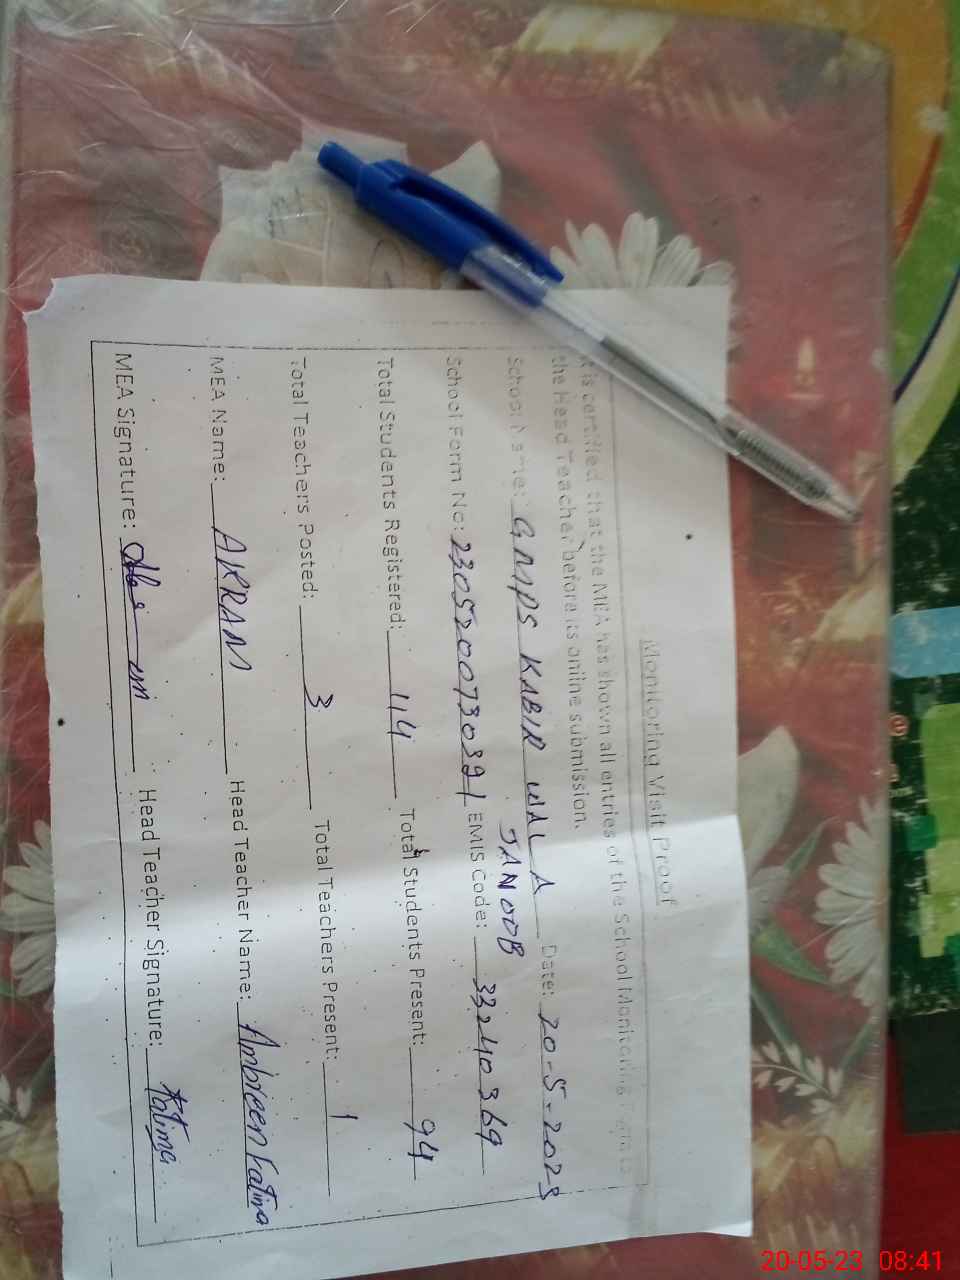 Monitoring Visit Proof
It is certified that the MEA has shown all entries of the School Monitoring Form to
the Head Teacher before its online submission.
School Name: GMPS KABIR WALA Date: 20-5-2023
JANOOB
School Form No: EMIS Code: 33240369
Total Students Registered: 114 Total Students Present: 94
Total Teachers Posted: 3 Total Teachers Present: 1
MEA Name: AKRAM Head Teacher Name: Ambreen Fatima
MEA Signature: Head Teacher Signature: Fatima
20-05-23 08:41